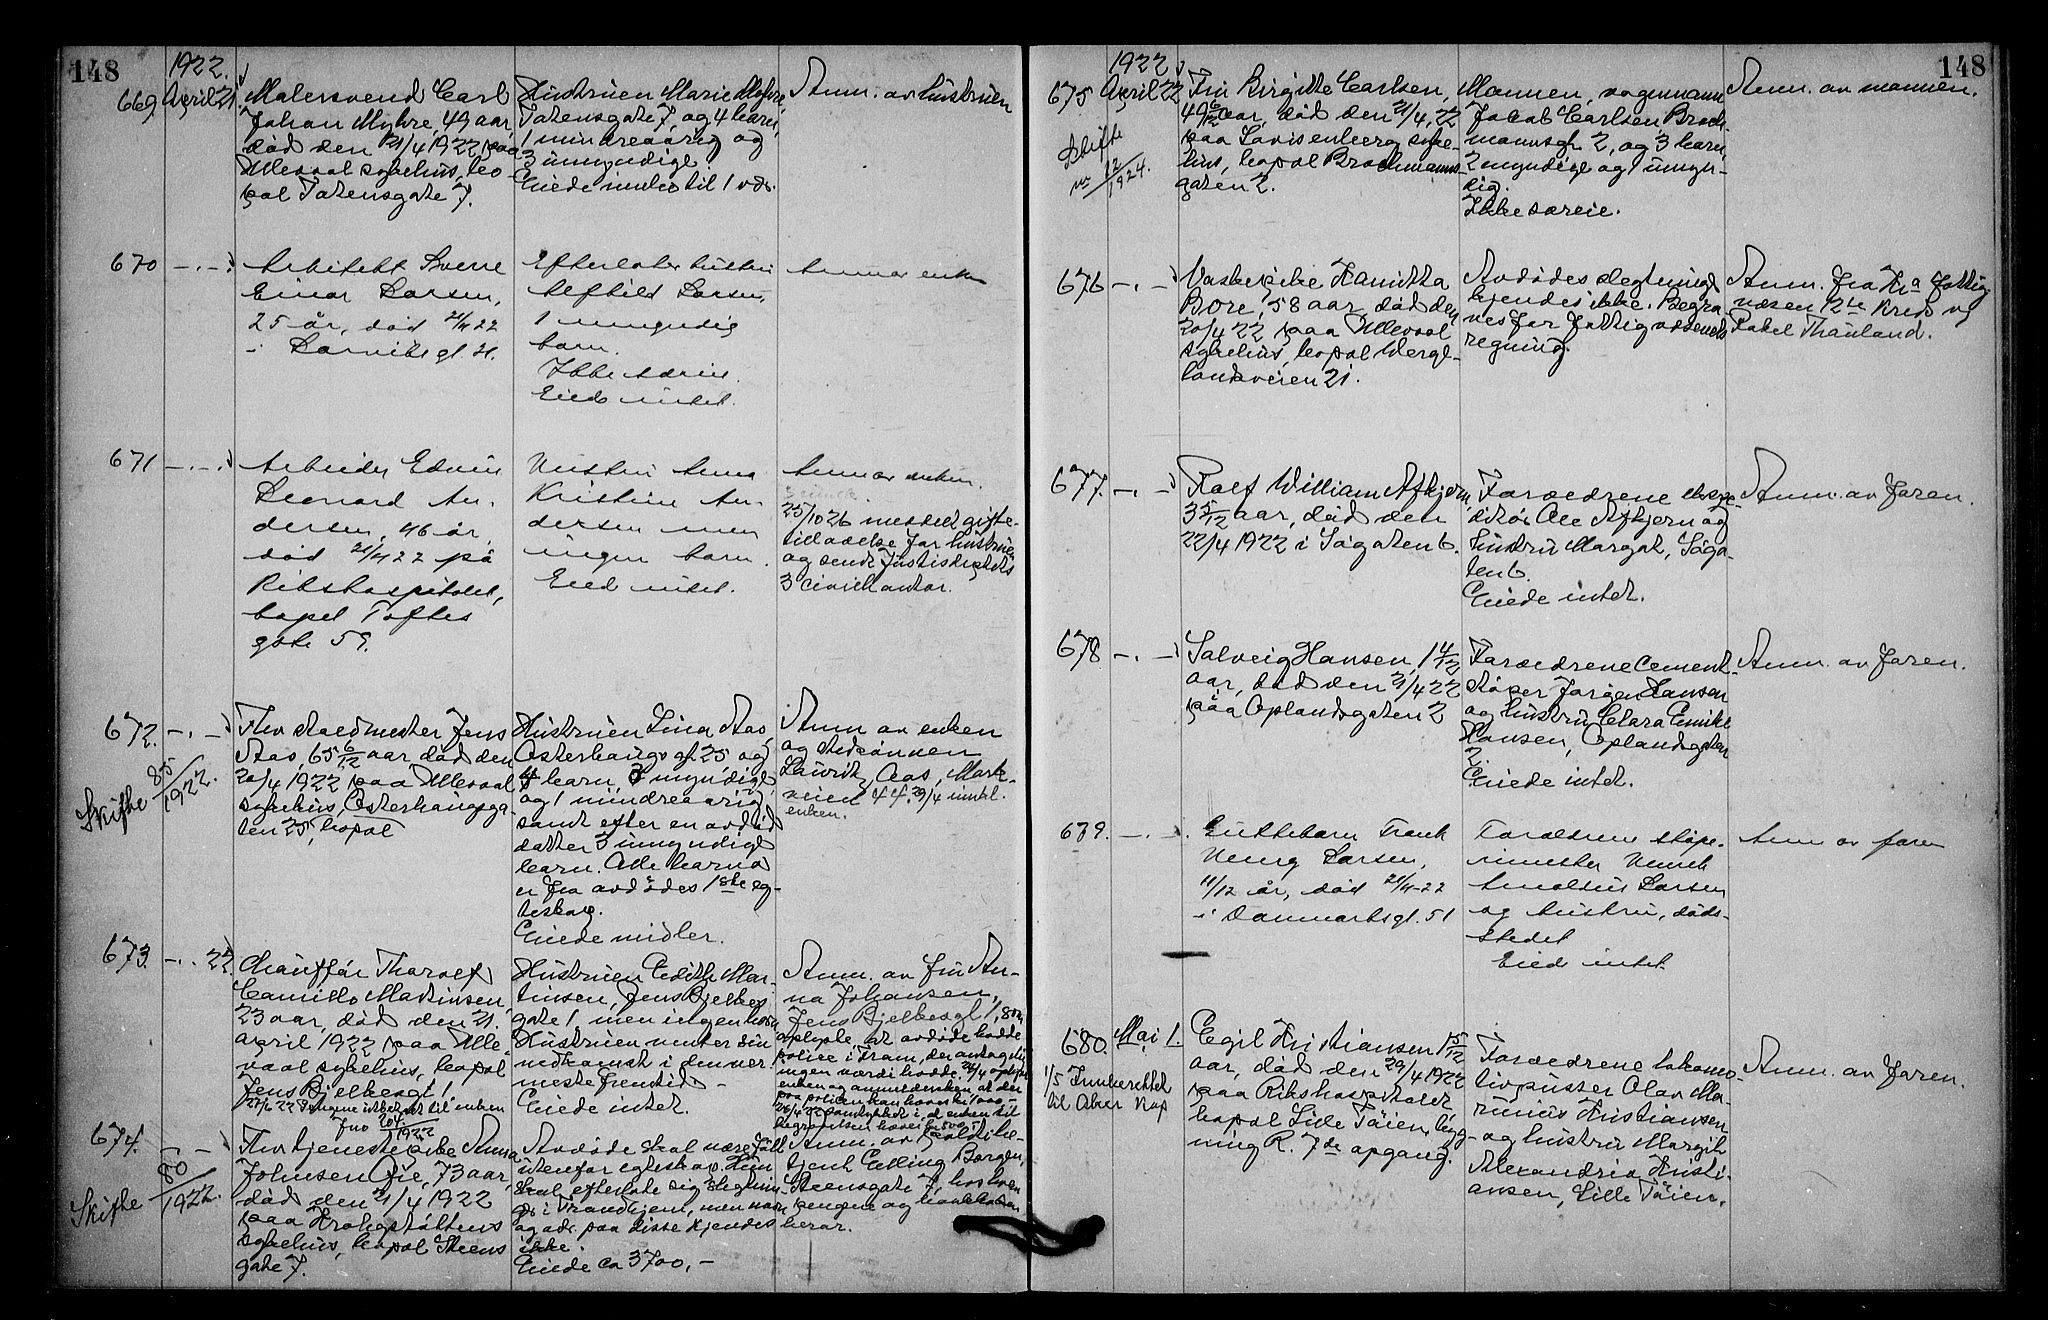 148
1922.
669. April 21.
Malersvend Carl
Johan Myhre, 49 aar,
død den 21/4 1922 paa
Ullevaal sykehus, bo
pæl Totensgate 7.
Hustruen Marie Myhre,
Totensgate 7, og 4 barn,
1 mindreaarig og
3 umyndige.
Eiede intet
Anm. av hustruen
670 -.-.
Arkitekt Sverre
Einar Larsen,
25 år, død 21/4 22
i Larviksgt 4.
Efterlater hustru
Larsen,
1 umyndig
barn.
Ikke særeie.
Eied intet.
Anm av enken
671 -.-.
Arbeider Edvin
Leonard An-
dersen, 46 år,
død 21/4 22 på
Rikshospitalet,
bopel Toftes
gate 59.
Hustru Anna
Kristine An-
dersen men
ingen barn.
Eied intet.
Anm av enken.
25/10 26 meddelt gifte-
tilladelse for hustruen
og sendt Justisdeptets
3 civilkontor.
672. -.-
Skifte 85/1922.
Fhv staldmester Jens
Aas, 65 6/12 aar, død den
20/4 1922 paa Ullevaal
sykehus, Osterhausga-
ten 25, bopæl
Hustruen Lina Aas,
Osterhausgt. 25 og
4 barn, 3 myndige
og 1 mindreaarig,
samt efter en avdød
datter 3 umyndige
barn. Alle barna
er fra avdødes 1ste eg-
teskap.
Eiede midler.
Anm av enken
og stedsønnen
Lauritz Aas, Mark-
veien 44. 29/4
enken.
673. -.- 22.
Chauffør Thorolf
Camillo Martinsen,
23 aar, død den 21.
april 1922 paa Ulle-
vaal sykehus, bopæl
Jens Bjelkesgt 1.
27/6 22 Pengene utbetalt til enken
Jno 1922
Hustruen Edith Mar-
tinsen, Jens Bjelkes
gate 1 men ingen barn
Hustruen venter sin
nedkomst i den nær-
meste fremtid.-
Eiede intet.
Anm. av fru An-
na Johansen,
Jens Bjelkesgt 1, som
oplyste at avdøde hadde
police i Fram, der antagelig
ingen værdi hadde.
enken og anmeldersken at den
674. -
Skifte 80/1922.
Fhv tjenestepike Anna
Johnsen Øie, 73 aar,
død den 21/4 1922
paa Krohgstøttens
sykehus, bopæl Steens
gate 7.
Avdøde skal være født
utenfor egteskap. Hun
skal efterlate sig slegtnin-
ger i Trondhjem, men navn
og adr. paa disse kjendes
ikke.
Eiede ca 3700,-
Anm. av
tjent Elling Borgen,
Steensgate 7, hos hvem
pengene og bankboken
beror.
148
1922
675 April 22
Skifte
nr 12/1924.
Fru Birgitte Carlsen,
49 6/12 aar, død den 21/4, 22
paa Lovisenberg syke-
hus, bopæl Brochmanns-
gaten 2.
Mannen, vognmann
Jakob Carlsen Broch-
mannsgt 2, og 3 barn,
2 myndige og 1 umyn-
dig.
Ikke særeie.
Anm. av mannen.
676 -.-
Vaskepike
Bore, 58 aar, død den
20/4 22 paa Ullevaal
sykehus, bopæl Werge-
landsveien 21.
Avdødes slegtninge
kjendes ikke. Begra-
ves for fattigvæsenets
regning.
Anm. fra Kra fattig-
væsen 2de Kreds v/
Rakel Thauland.
677. -.-
Rolf William Afkjern,
3 5/12 aar, død den
22/4 1922 i Søgaten 6.
Forældrene ekspe-
ditør Ole Afkjern og
hustru Margot, Søga-
ten 6.
Eiede intet.
Anm. av faren.
678 -.-
Solveig Hansen, 1 4/12
aar, død den 21/4 22
paa Oplandsgaten 2
Forældrene cement-
støper Jørgen Hansen
og hustru Clara Emilie
Hansen, Oplandsgaten
2.
Eiede intet.
Anm. av faren.
679. -.-.
Guttebarn Frank
Henry Larsen,
11/12 år, død 21/4-22
i Danmarksgt. 51
Forældrene støpe-
rimester Henrik
Larsen
og hustru, døds-
stedet
Eied intet
Anm av faren
680. Mai 1.
1/5
til Aker
Egil Kristiansen 1 5/12
aar, død den 29/4 1922
paa Rikshospitalet
bopæl Lille Tøien, byg-
ning R. 7de opgang.
Forældrene lokomo-
tivpusser Olav Ma-
rinius Kristiansen
og hustru Margit
Alexandria Kristi-
ansen, Lille Tøien.
Anm. av faren.